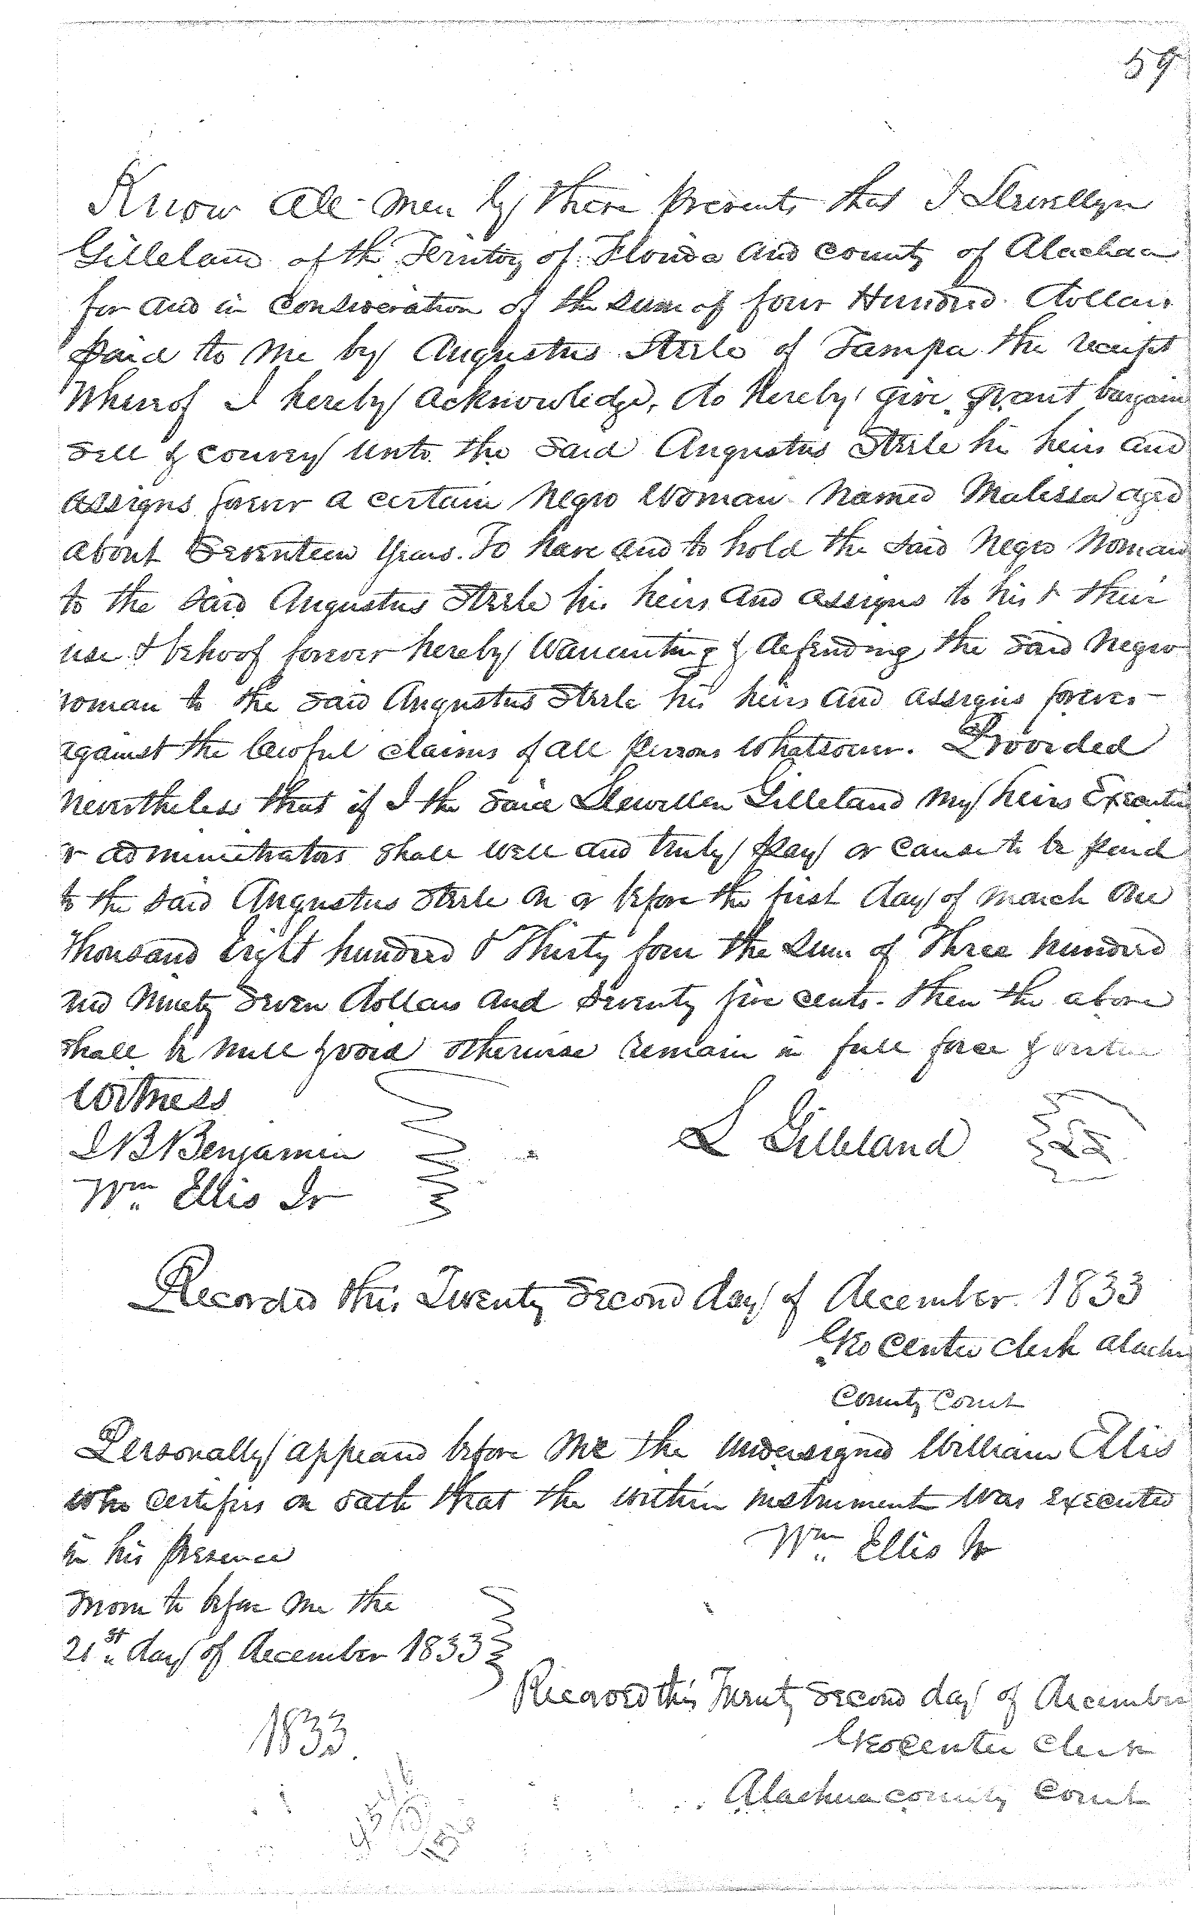 59
Know All Men by these Presents that I Llewellyn
Gilleland of the Territory of Florida and county of Alachua
for and in consideration of the sum of four Hundred dollars
paid to me by Augustus Steele of Tampa the receipt
Whereof I hereby acknowledge, do hereby give, grant bargain
sell & convey unto the said Augustus Steele his heirs and
assigns forever a certain Negro Woman named Malissa aged
about Seventeen years. To have and to hold the said Negro Woman
to the said Augustus Steele his heirs and assigns to his & their
use & behoof forever hereby Warranting & defending the said Negro
woman to the said Augustus Steele his heirs and assigns forever
against the lawful claims of all persons whatsoever. Provided
Nevertheless that if I the said Llewellen Gilleland my heirs Executors
or administrators shall well and truly pay or cause to be paid
to the said Augustus Steele on or before the first day of march one
thousand Eight hundred & Thirty four the sum of Three hundred
and Ninety Seven dollars and seventy five cents. then the above
shall be null & void otherwise remain in full force & virtue
Witness
J B Benjamin
L Gilleland LS
Wm Ellis Jr
Recorded this Twenty Second day of december 1833
Geo Center clerk alachua
County Court
Personally appeard before me the undersigned William Ellis
who certifies on oath that the within instrument was executed
in his presence
Wm Ellis Jr
sworn to before me the
21st day of december 1833
Recorded this Twenty second day of december
1833
Geo Center clerk
Alachua county Court